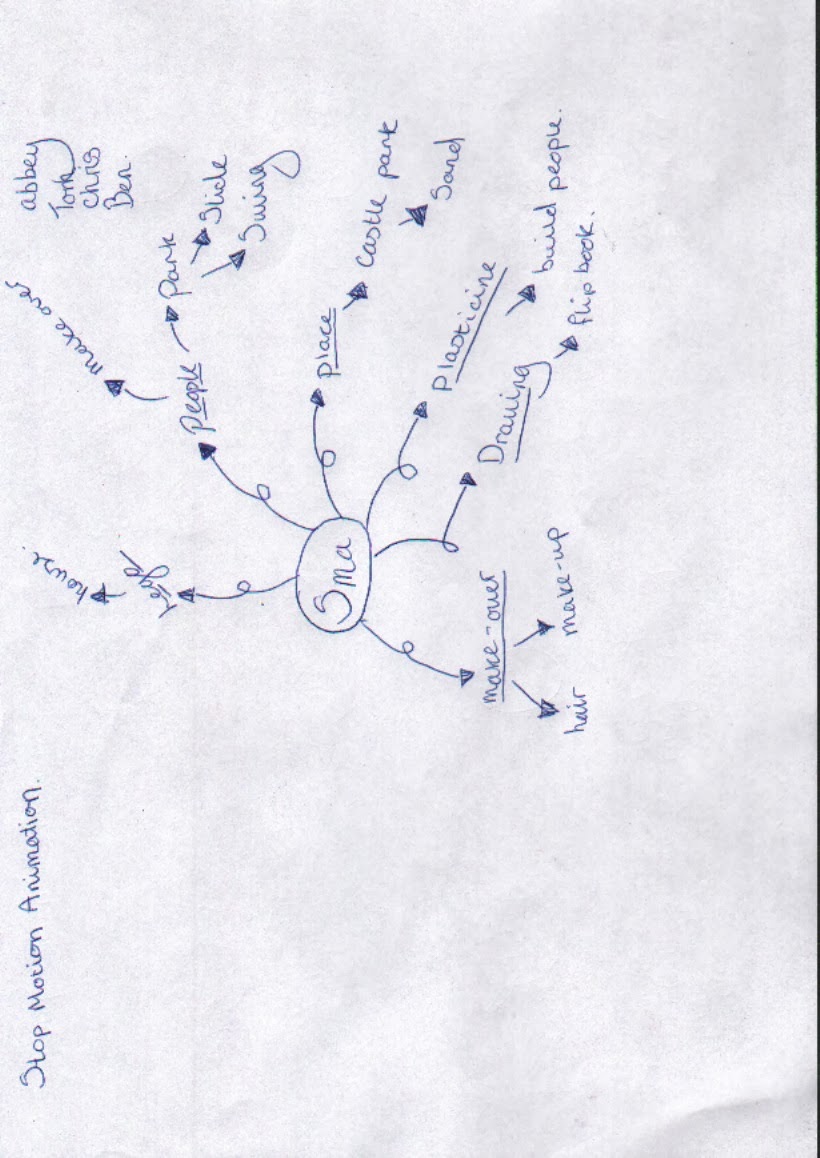 Stop Motion Animation.
abbey
Tom
Chris
Ben.
Sma
lego
house.
People
make over
Park
Slide
Swing
place
Castle park
Sand
Plasticine
build people.
Drawing
flip book.
make-over
hair
make-up